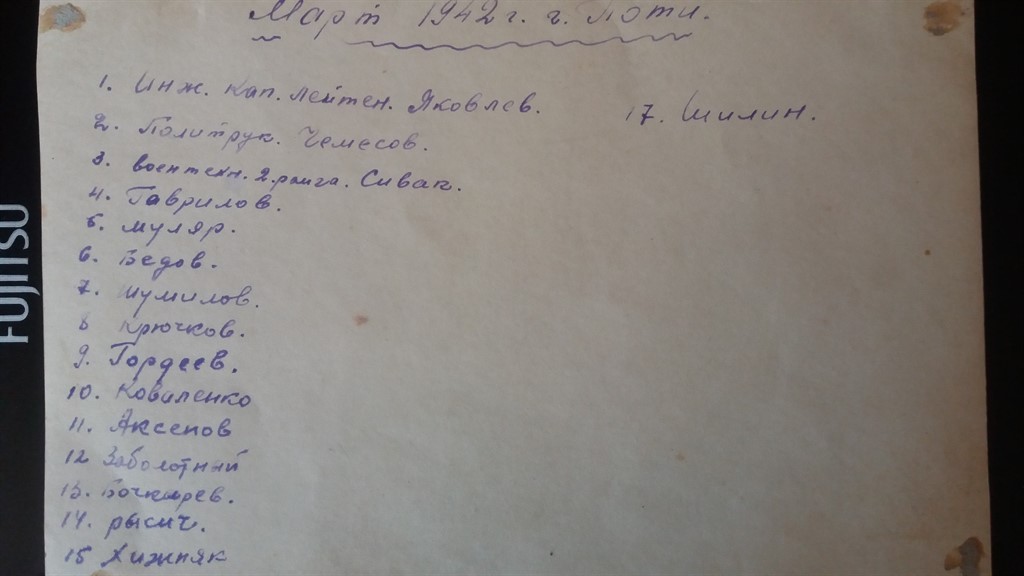 Март 1942 г. г. Поти.
1. Инж. Кап. лейтен. Яковлев.
17. Шилин.
2. Политрук. Чемесов.
3. воентехн. 2. ранга. Сивак.
4. Гаврилов.
5. Муляр.
6. Бедов.
7. Шумилов.
8 Крючков.
9. Гордеев.
10. Коваленко
11. Аксенов
12 Заболотный
13. Бочкарев.
14. рысич.
15 Хижняк
FUJITSU